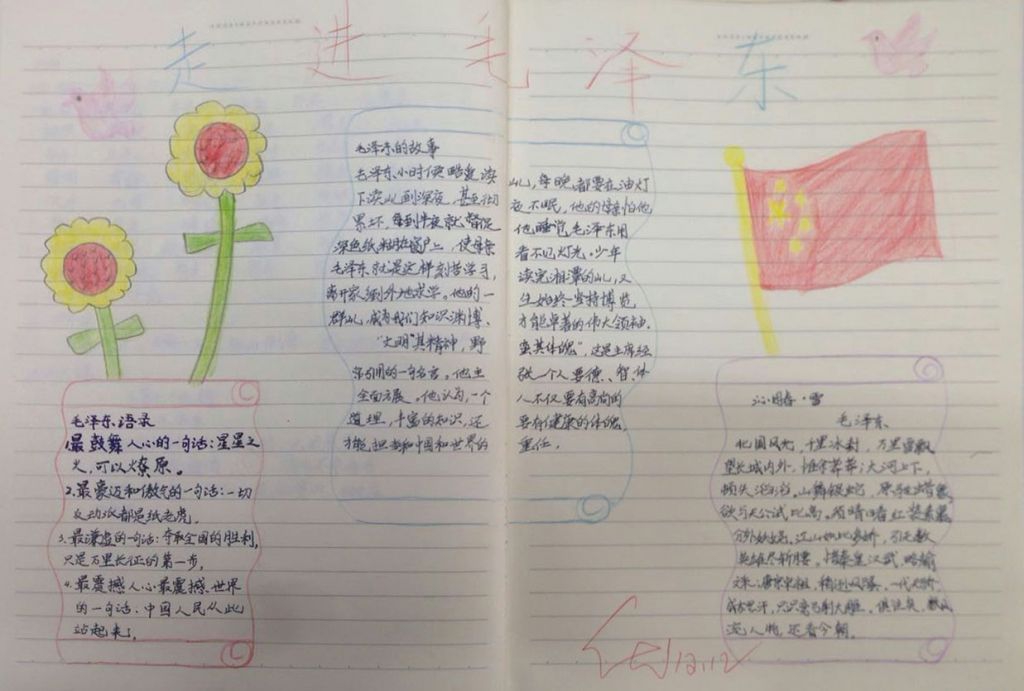 走进毛泽东
毛泽东的故事
毛泽东小时候酷爱读书,每晚都要在油灯
下读书到深夜,甚至彻夜不眠,他的母亲怕他
累坏,每到半夜就督促他睡觉,毛泽东用
深色纸粘在窗户上,使母亲看不见灯光。少年
毛泽东就是这样刻苦学习,读完湘潭的书,又
离开家到外地求学。他的一生始终坚持博览
群书,成为我们知识渊博、才能卓著的伟大领袖。
"文明其精神,野蛮其体魄",这是主席经
常引用的一句名言。他主张一个人要德、智、体
全面发展。他认为,一个人不仅要有高尚的
道理,丰富的知识,还要有健康的体魄
才能担当和中国和世界的重任。
毛泽东语录
1.最鼓舞人心的一句话:星星之
火,可以燎原。
2.最豪迈和傲气的一句话:一切
反动派都是纸老虎。
3.最谦虚的一句话:夺取全国的胜利,
只是万里长征的第一步。
4.最震撼人心最震撼世界
的一句话:中国人民从此
站起来了。
沁园春·雪
毛泽东
北国风光,千里冰封,万里雪飘
望长城内外,惟余莽莽;大河上下,
顿失滔滔。山舞银蛇,原驰蜡象
欲与天公试比高。须晴日看红装素裹
分外妖娆。江山如此多娇,引无数
英雄尽折腰。惜秦皇汉武,略输
文采;唐宗宋祖,稍逊风骚。一代天骄
成吉思汗,只识弯弓射大雕。俱往矣,数风
流人物,还看今朝。
12.12